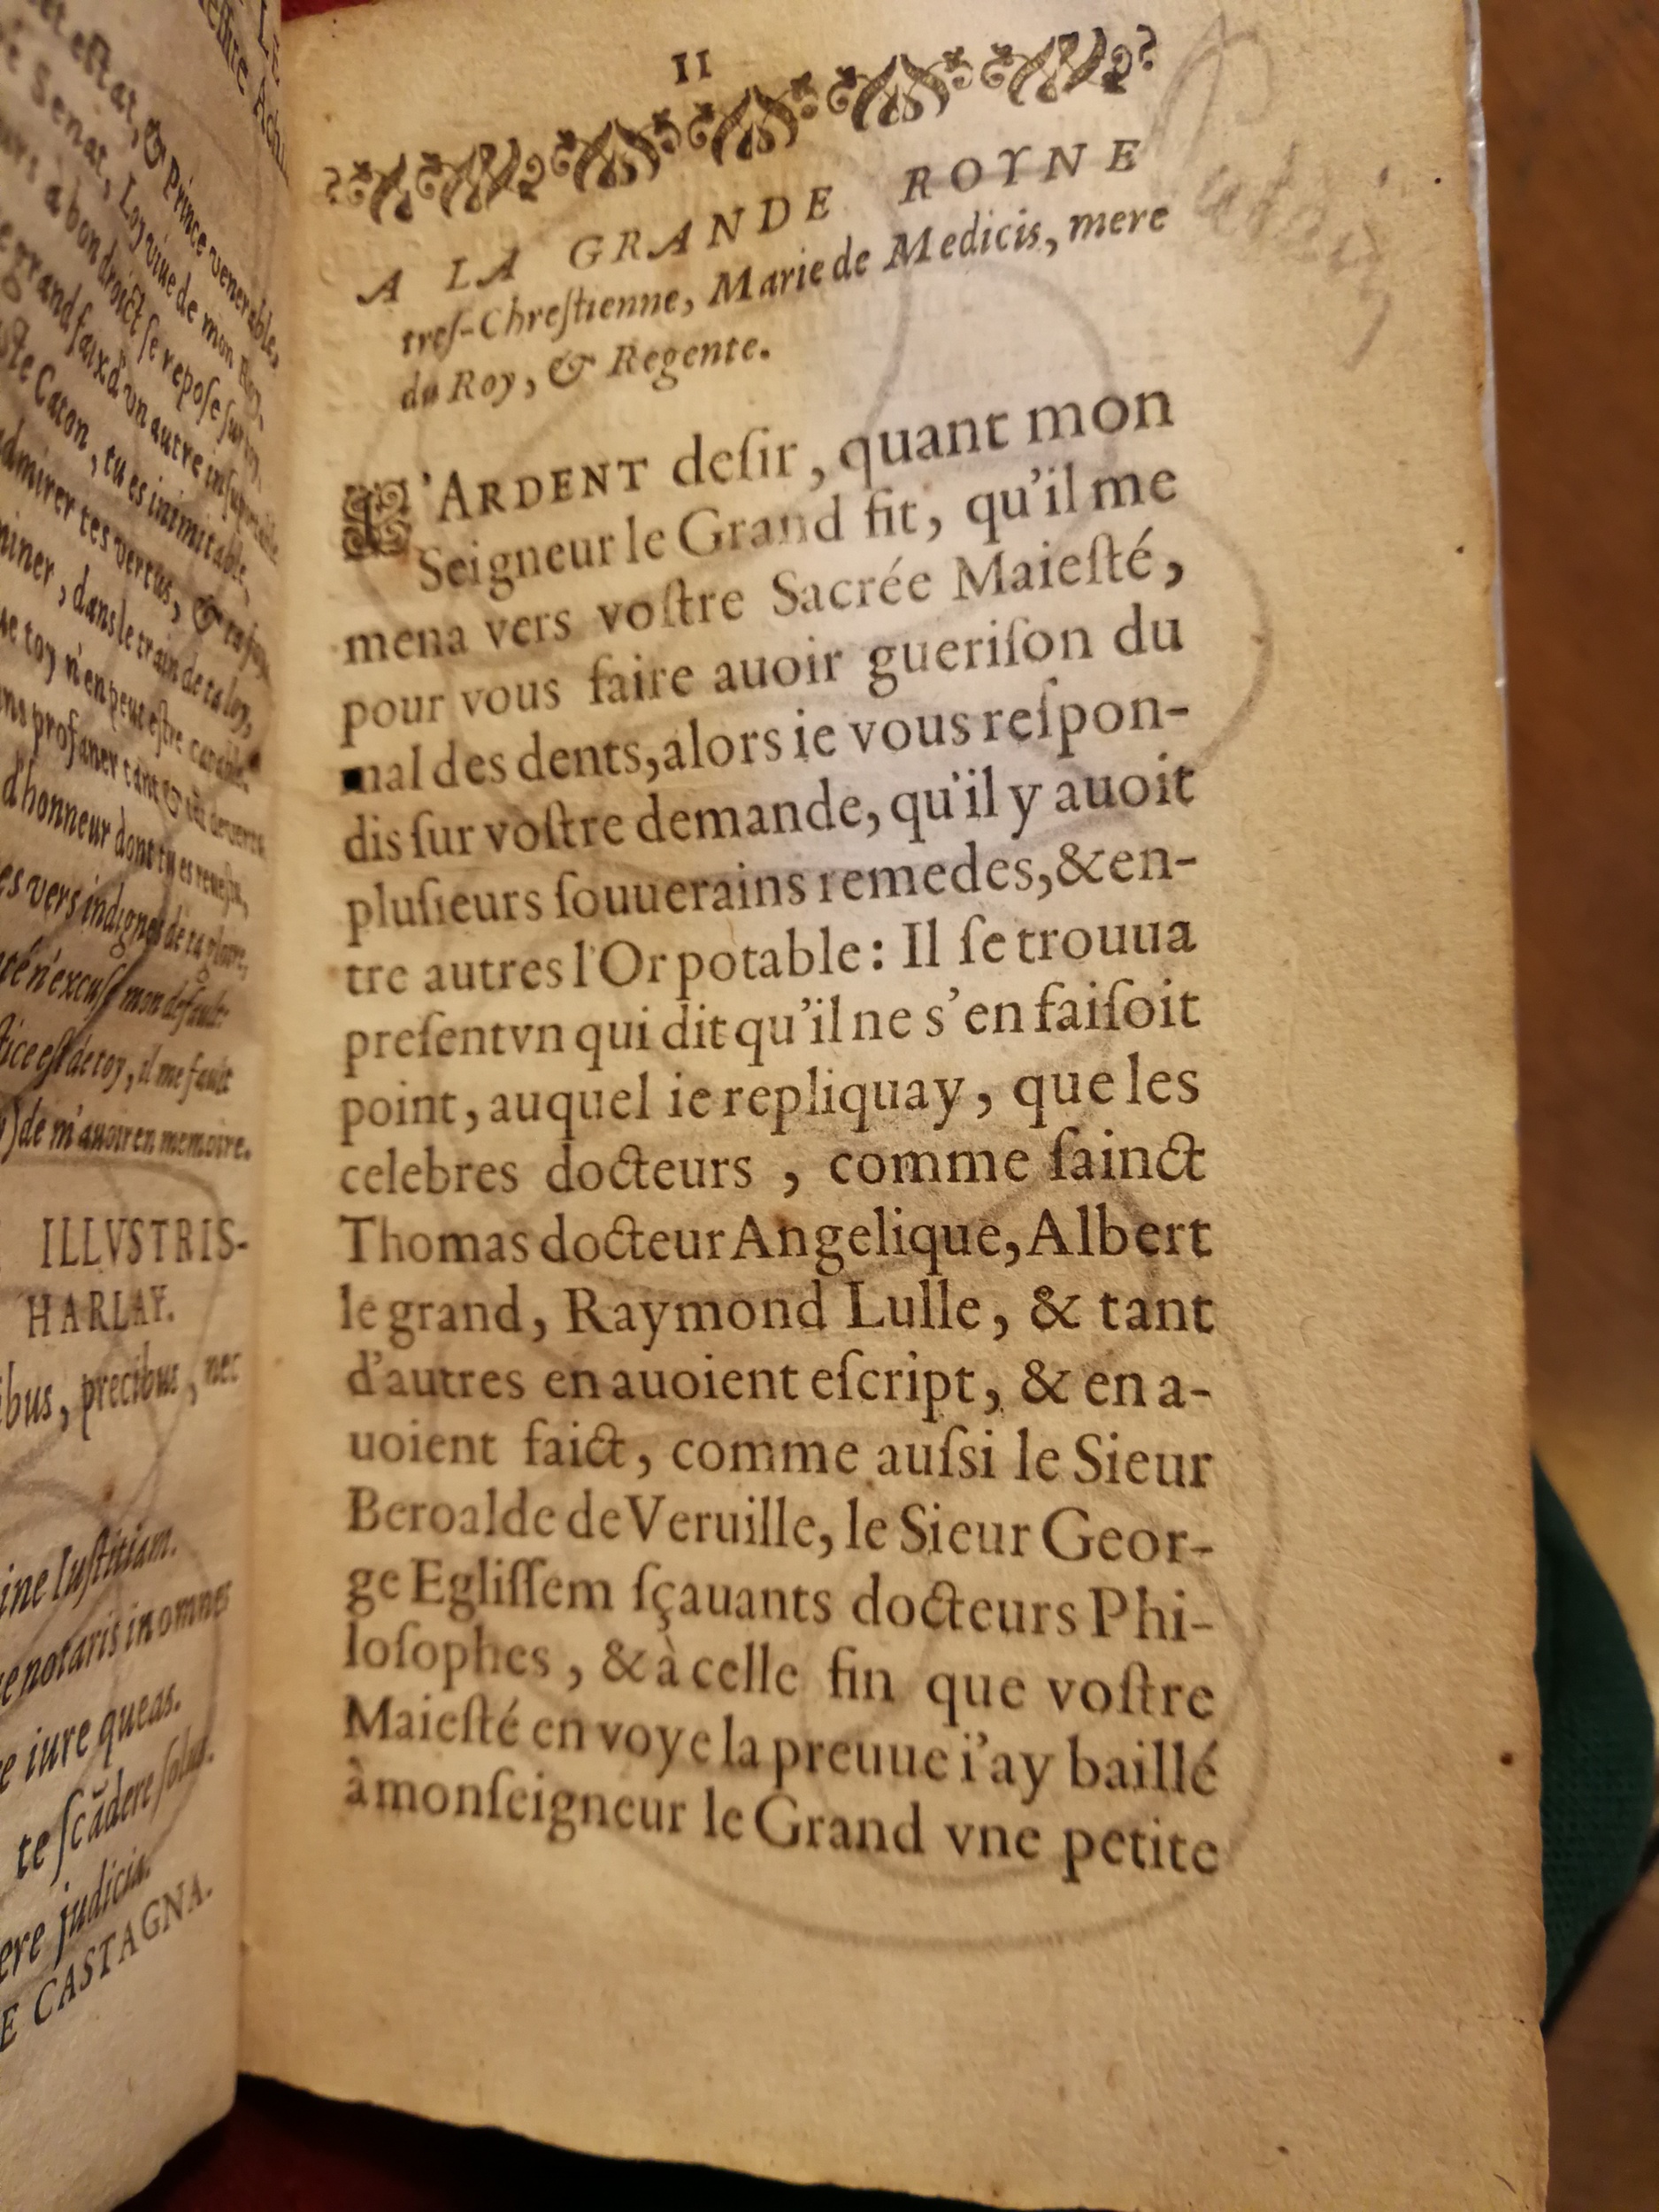 est estat, & Prince venerable,
Senat, Loy viue de mon Roy,
a bon droict se repose sur
grand faix d'vn autre insuportable
Caton, tu es inimitable,
admirer tes vertus, & ta
miner, dans le train de ta loy,
que toy n'en peut estre capable.
profaner
d'honneur dont tu es reuestu,
es vers indignes de ta gloire,
n'excuse mon default:
stice est de toy, il me fault
)de m'auoir en memoire.
ILLVSTRIS-
HARLAY.
ibus, precibus, nec
ine Iustitiam.
notaris in omnes
e iure queas.
te scãdere solus.
ere judicia.
E CASTAGNA.
11
A LA GRANDE ROYNE
tres-Chrestienne, Marie de Medicis, mere
du Roy, & Regente.
L'ARDENT desir, quant mon
Seigneur le Grand fit, qu'il me
mena vers vostre Sacrée Maiesté,
pour vous faire auoir guerison du
mal des dents, alors ie vous respon-
dis sur vostre demande, qu'il y auoit
plusieurs souuerains remedes, & en-
tre autres l'Or potable: Il se trouua
present vn qui dit qu'il ne s'en faisoit
point, auquel ie repliquay, que les
celebres docteurs, comme sainct
Thomas docteur Angelique, Albert
le grand, Raymond Lulle, & tant
d'autres en auoient escript, & en a-
uoient faict, comme aussi le Sieur
Beroalde de Veruille, le Sieur Geor-
ge Eglissem sçauants docteurs Phi-
losophes, & à celle fin que vostre
Maiesté en voye la preuue i'ay baillé
à monseigneur le Grand vne petite